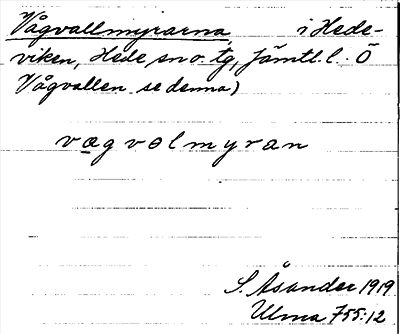 Vågvallmyrarna, i Hede-
viken, Hede sn o. tg, Jämtl. l. Ö
Vågvallen se denna)
vægvalmyran
S. Åsander 1919
Ulma 755:12